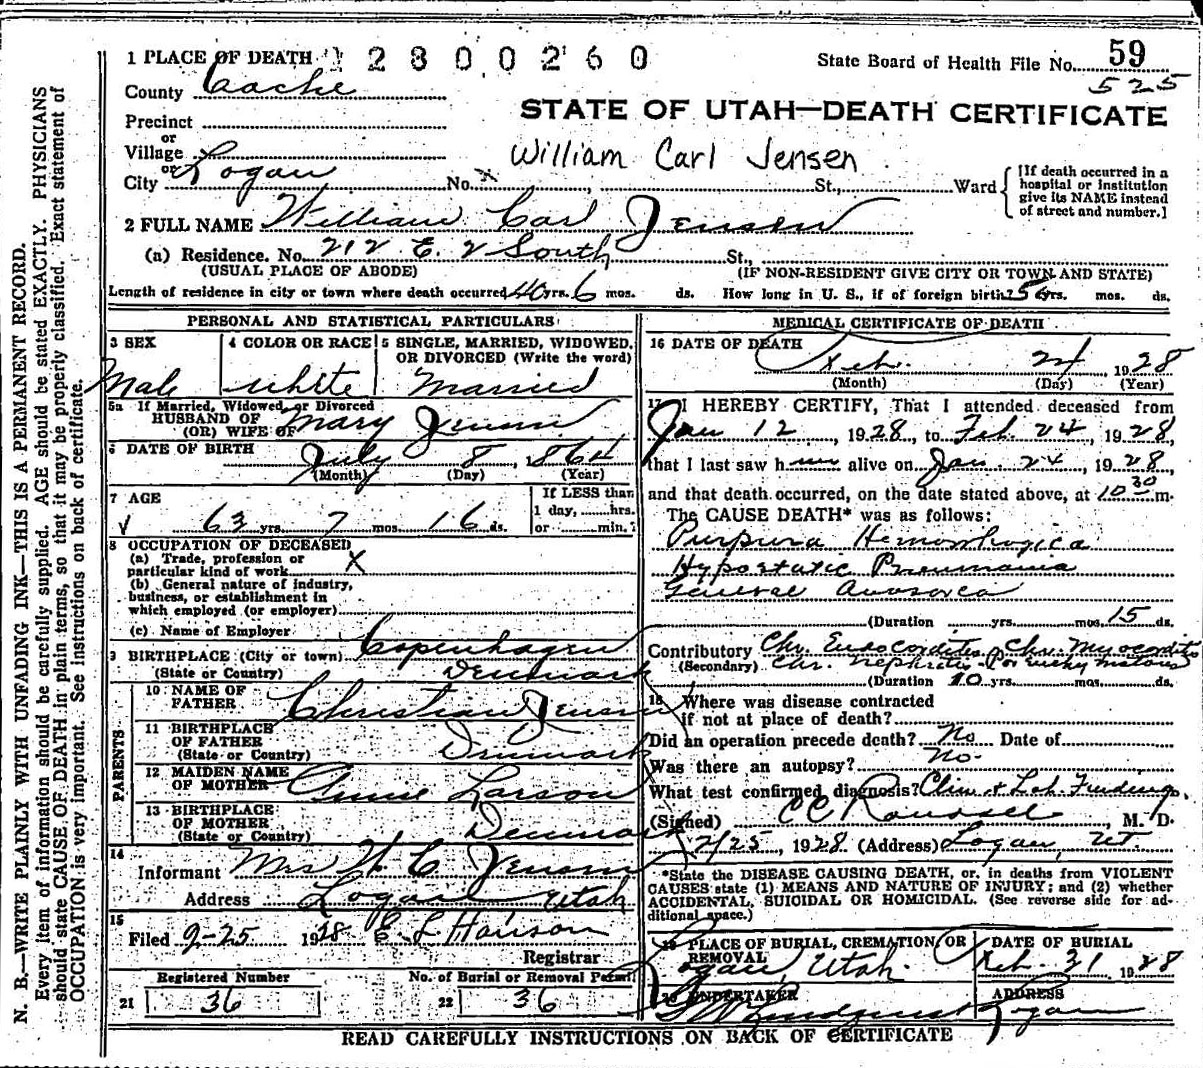 1 PLACE OF DEATH 12800260
State Board of Health File No. 59
525
County Cache
STATE OF UTAH—DEATH CERTIFICATE
Precinct
or
Village
William Carl Jensen
or
City Logan No. x St., Ward
[If death occurred in a
hospital or institution
give its NAME instead
of street and number.]
2 FULL NAME William Carl Jensen
(a) Residence. No. 212 E. 2 South St.,
(USUAL PLACE OF ABODE) (IF NON-RESIDENT GIVE CITY OR TOWN AND STATE)
Length of residence in city or town where death occurred 40 yrs. 6 mos. ds. How long in U. S., if of foreign birth yrs. mos. ds.
PERSONAL AND STATISTICAL PARTICULARS
3 SEX
Male
4 COLOR OR RACE
white
5 SINGLE, MARRIED, WIDOWED,
OR DIVORCED (Write the word)
Married
5a If Married, Widowed, or Divorced
HUSBAND OF
(OR) WIFE OF Mary Jensen
6 DATE OF BIRTH July 8, 1864
(Month) (Day) (Year)
7 AGE
63 yrs. 7 mos. 16 ds.
If LESS than
1 day, hrs.
or min.?
8 OCCUPATION OF DECEASED
(a) Trade, profession or
particular kind of work X
(b) General nature of industry,
business, or establishment in
which employed (or employer)
(c) Name of Employer
9 BIRTHPLACE (City or town) Copenhagen
(State or Country) Denmark
PARENTS
10 NAME OF
FATHER Christian Jensen
11 BIRTHPLACE
OF FATHER
(State or Country) Denmark
12 MAIDEN NAME
OF MOTHER Annie Larson
13 BIRTHPLACE
OF MOTHER
(State or Country) Denmark
14
Informant Mrs W C Jensen
Address Logan Utah
15
Filed 2-25 1928 E L Hanson
Registrar
Registered Number
21 36
No. of Burial or Removal Permit
22 36
MEDICAL CERTIFICATE OF DEATH
16 DATE OF DEATH
Feb. 24 1928
(Month) (Day) (Year)
17 I HEREBY CERTIFY, That I attended deceased from
Jan 12, 1928, to Feb. 24, 1928,
that I last saw him alive on Jan. 24, 1928,
and that death occurred, on the date stated above, at 10 30 m.
The CAUSE DEATH* was as follows:
Purpura Hemorrhagica
Hypostatic Pneumonia
General Anasarca
(Duration yrs. mos. 15 ds.
Contributory Chr. Endocarditis & Chr. Myocarditis
(Secondary) Chr. Nephritis
(Duration 10 yrs. mos. ds.
18 Where was disease contracted
if not at place of death?
Did an operation precede death? No Date of
Was there an autopsy? No.
What test confirmed diagnosis? Clin. & Lab. Findings.
(Signed) , M. D.
2/25, 1928 (Address) Logan, Ut.
*State the DISEASE CAUSING DEATH, or, in deaths from VIOLENT
CAUSES state (1) MEANS AND NATURE OF INJURY; and (2) whether
ACCIDENTAL, SUICIDAL OR HOMICIDAL. (See reverse side for ad-
ditional space.)
19 PLACE OF BURIAL, CREMATION, OR
REMOVAL
Logan, Utah.
DATE OF BURIAL
Feb. 1928
20 UNDERTAKER
ADDRESS
Logan
READ CAREFULLY INSTRUCTIONS ON BACK OF CERTIFICATE
N. B.—WRITE PLAINLY WITH UNFADING INK—THIS IS A PERMANENT RECORD.
Every item of information should be carefully supplied. AGE should be stated EXACTLY. PHYSICIANS
should state CAUSE OF DEATH in plain terms, so that it may be properly classified. Exact statement of
OCCUPATION is very important. See instructions on back of certificate.